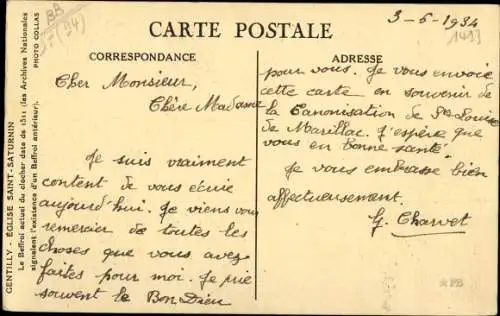 CARTE POSTALE
3-6-1934
BB
(94)
1493
CORRESPONDANCE
ADRESSE
Cher Monsieur,
Chère Madame
Je suis vraiment
content de vous écrire
aujourd'hui. Je viens vous
remercier de toutes les
choses que vous avez
faites pour moi. Je prie
souvent le Bon Dieu
pour vous. Je vous envoie
cette carte en souvenir de
la Canonisation de Ste Louise
de Marillac. J'espère que
vous en bonne santé.
Je vous embrasse bien
affectueusement.
G. Charvet
GENTILLY - ÉGLISE SAINT-SATURNIN
Le Beffroi actuel du clocher date de 1511 (les Archives Nationales
signalent l'existence d'un Beffroi antérieur).
PHOTO COLLAS
PB